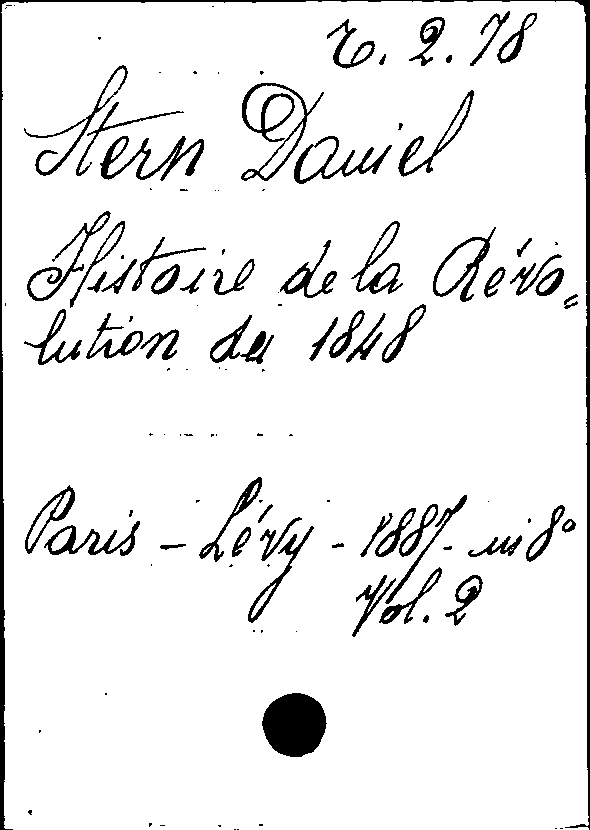 T. 2. 78
Stern Daniel
Histoire de la Révo=
lution de 1848
Paris - Lévy - 1887 - in 8°
Vol. 2